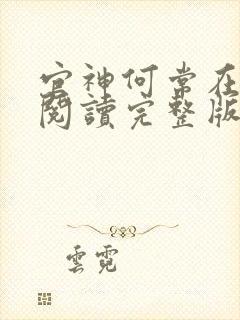 官神何常在
閱讀完整版
雲霓